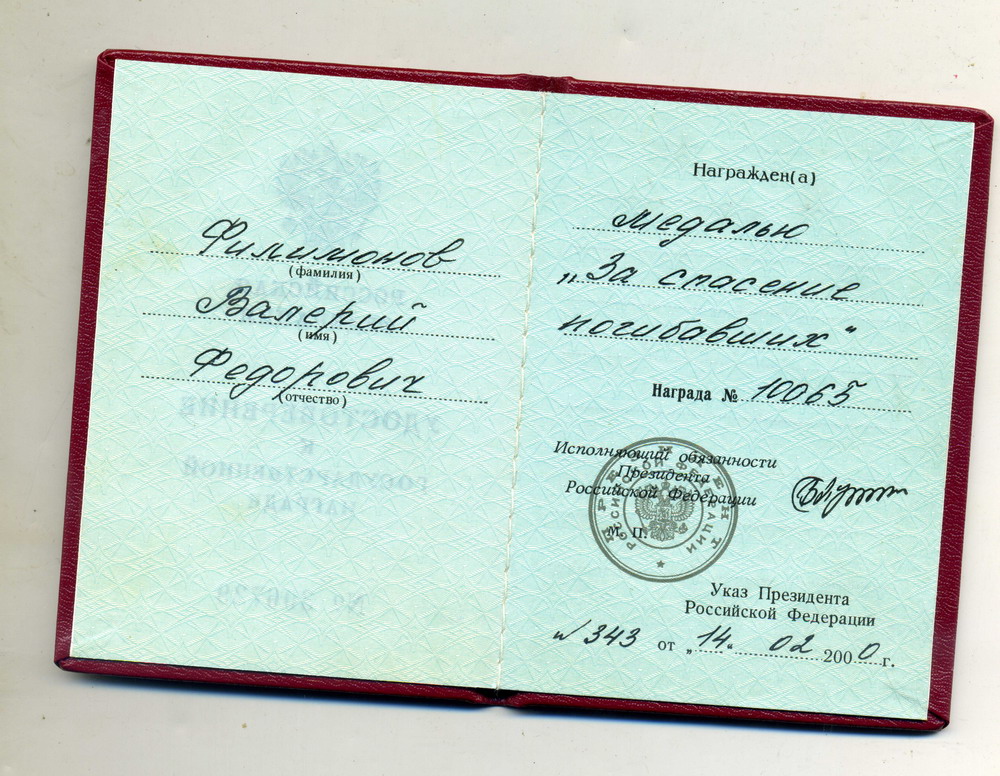 Филимонов
(фамилия)
Валерий
(имя)
Федорович
(отчество)
РОССИЙСКАЯ
УДОСТОВЕРЕНИЕ
К
ГОСУДАРСТВЕННОЙ
НАГРАДЕ
Награжден(а)
медалью
„За спасение
погибавших“
Награда № 10065
Исполняющий обязанности
Президента
Российской Федерации
М. П.
ПРЕЗИДЕНТ
РОССИЙСКОЙ ФЕДЕРАЦИИ
Указ Президента
Российской Федерации
№ 343 от „14“ 02 2000 г.